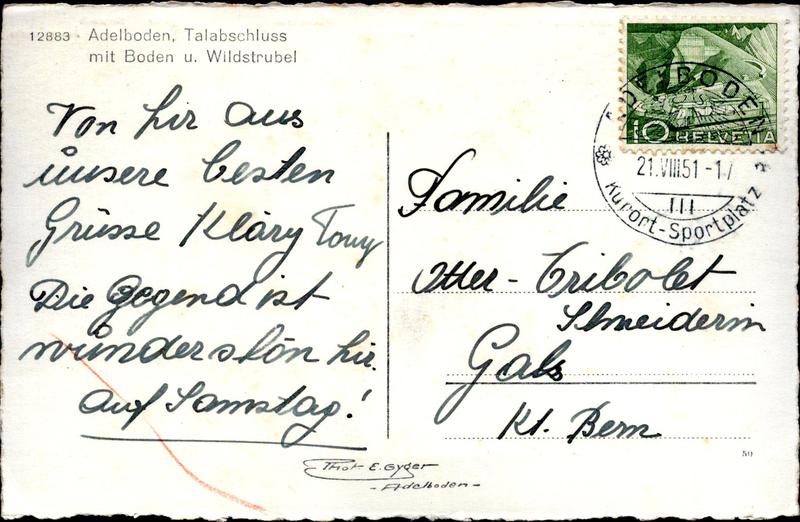 12883 - Adelboden, Talabschluss
mit Boden u. Wildstrubel
Von hir aus
unsere besten
Grüsse Kläry Tony
Die Gegend ist
wünderschön hir.
auf Samstag!
10 HELVETIA
ADELBODEN
21.VIII.51-17
III
Kurort-Sportplatz
Familie
Otter-Tribolet
Schneiderin
Gals
Kt. Bern
50
Phot E. Gyger
- Adelboden -